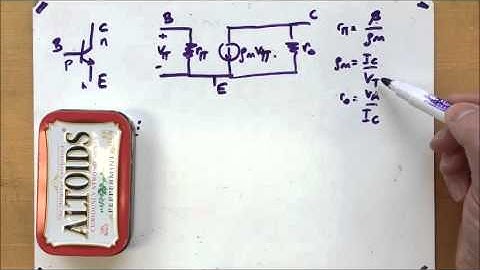 C
n
B
P
E
B
C
+
Vπ
-
rπ
gmVπ
ro
E
rπ = β/gm
gm = Ic/VT
ro = VA/Ic
ALTOIDS
CURIOUSLY STRONG
PEPPERMINTS